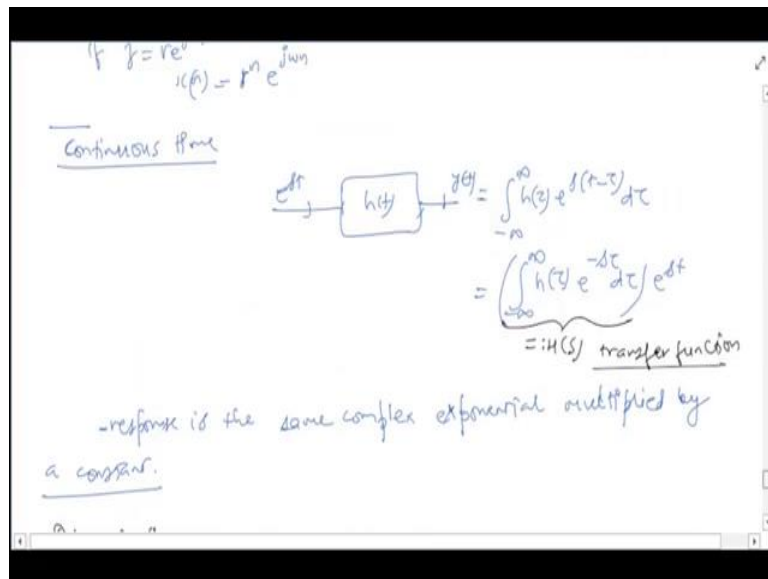 z = re
x(n) = r^n e^{jωn}
Continuous time
e^{st} h(t) y(t) = ∫_{-∞}^{∞} h(τ) e^{s(t-τ)} dτ
= (∫_{-∞}^{∞} h(τ) e^{-sτ} dτ) e^{st}
=: H(s) transfer function
-response is the same complex exponential multiplied by
a constant.